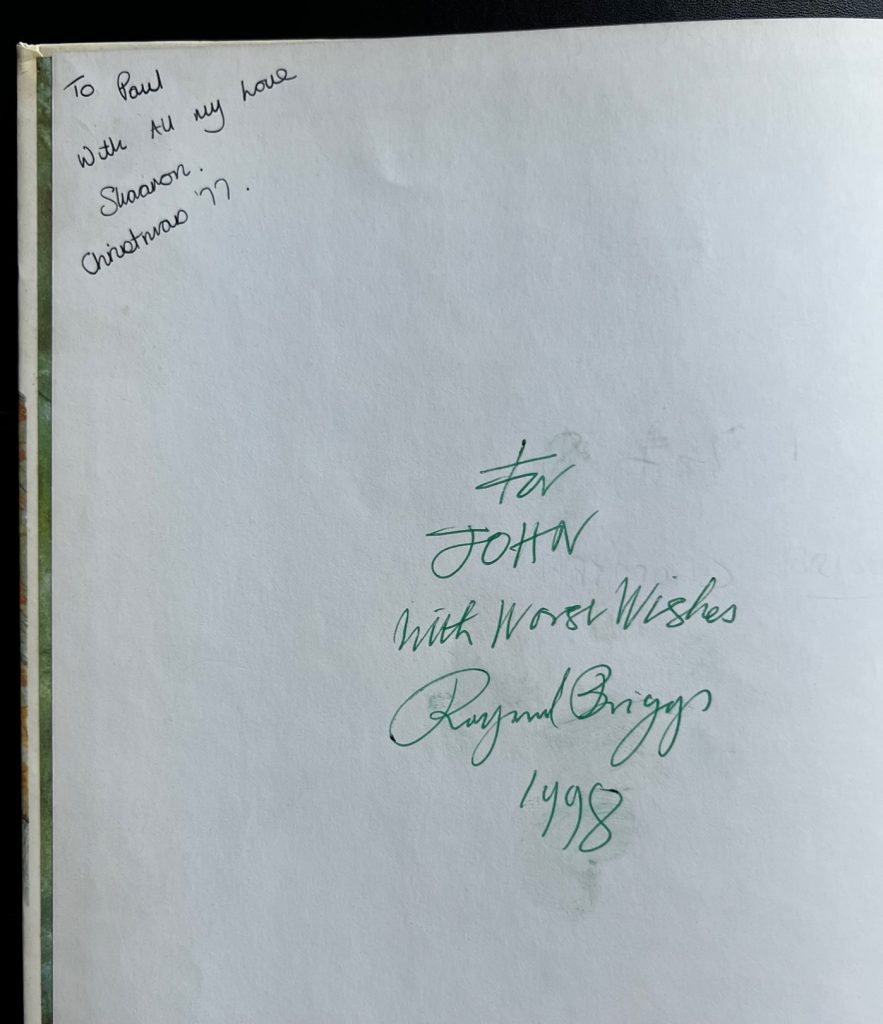 To Paul
With All my Love
Shaaron.
Christmas '77.
For
JOHN
With Worst Wishes
Raymond Briggs
1998